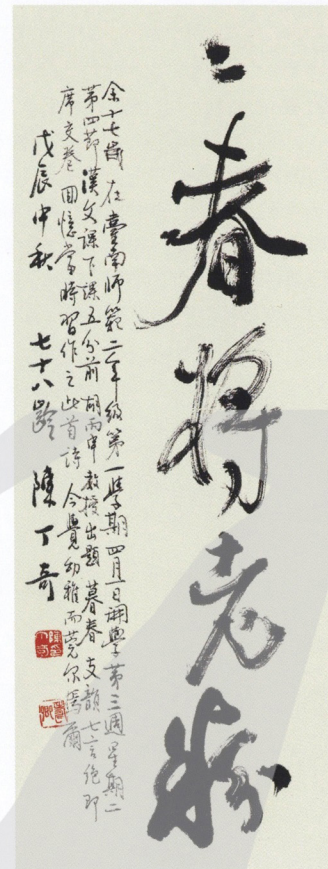 三春將老綠
余十七歲在臺南師範二年級第一學期四月一日開學第三週星期二
第四節漢文課下課五分前胡丙申教授出題暮春支韻七言絕即
席交卷回憶當時習作之此首詩今覺幼雅而莞尔焉爾
戊辰中秋 七十八齡 陳丁奇